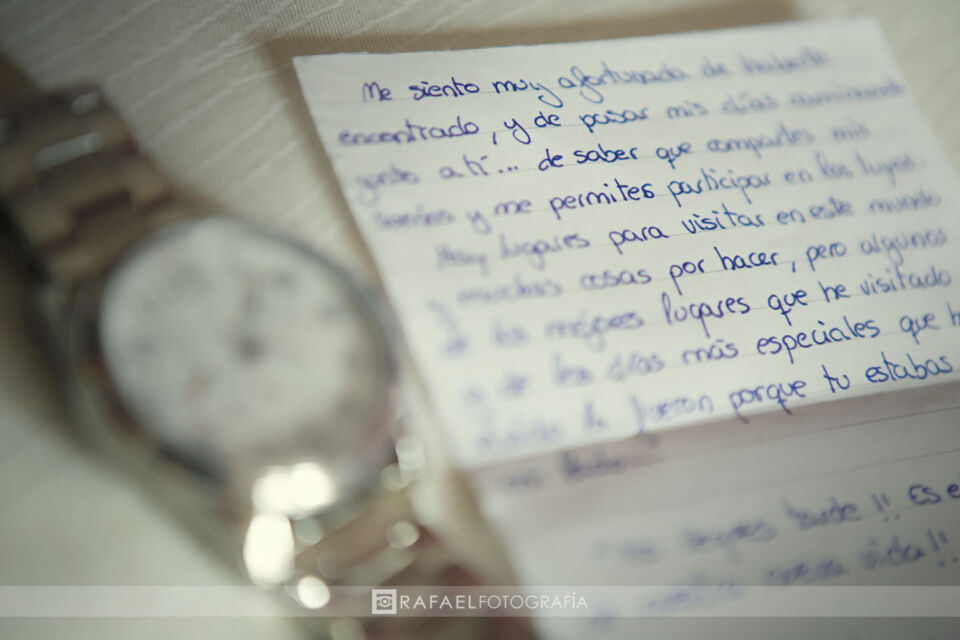 Me siento muy afortunada de haberte
encontrado, y de pasar mis días caminando
junto a tí... de saber que compartes mis
sueños y me permites participar en los tuyos.
Hay lugares para visitar en este mundo
y muchas cosas por hacer, pero algunos
de los mejores lugares que he visitado
y de los días más especiales que h
vivido lo fueron porque tu estabas
a mi lado...
No llegues tarde!! Es e
de nuestra nueva vida!!
RAFAELFOTOGRAFÍA